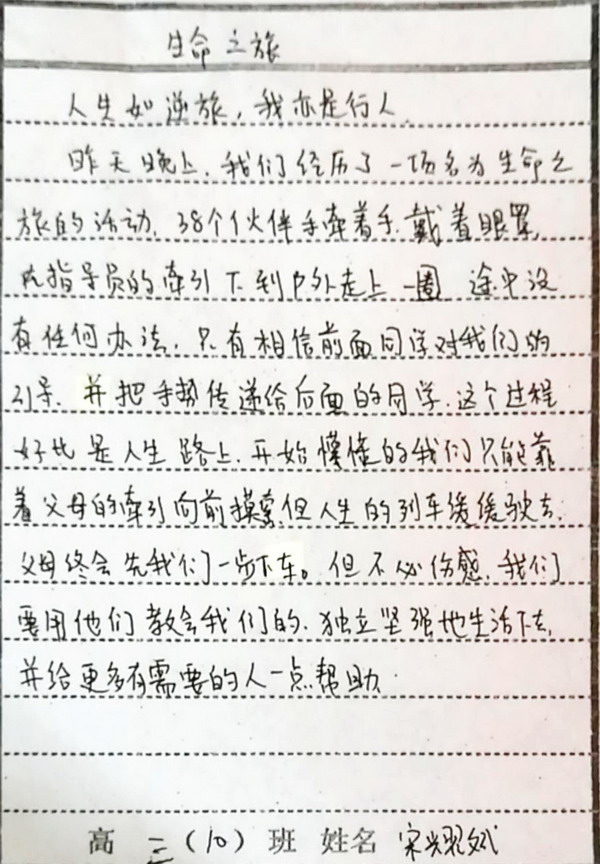 生命之旅
人生如逆旅，我亦是行人.
昨天晚上.我们经历了一场名为生命之
旅的活动.38个伙伴手牵着手.戴着眼罩,
在指导员的牵引下到户外走上一圈 途中没
有任何办法.只有相信前面同学对我们的
引导.并把手势传递给后面的同学.这个过程
好比是人生路上.开始懵懂的我们只能靠
着父母的牵引向前摸索.但人生的列车缓缓驶去.
父母终会先我们一步下车。但不必伤感.我们
要用他们教会我们的.独立坚强地生活下去,
并给更多有需要的人一点帮助.
高 三（10）班 姓名 宋耀斌